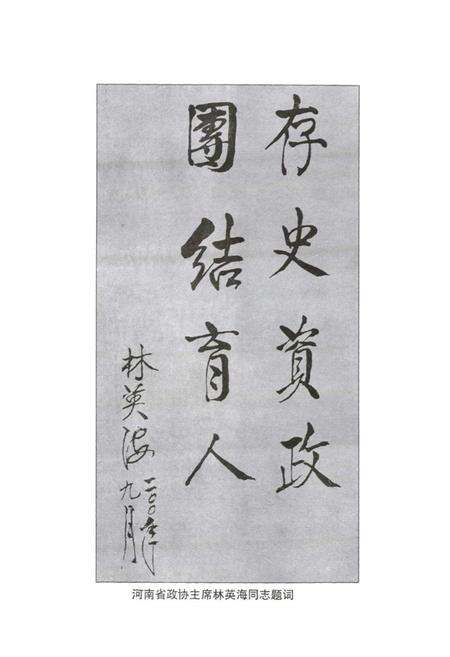 存史資政
團結育人
林英海
二〇〇〇年
九月
河南省政协主席林英海同志题词